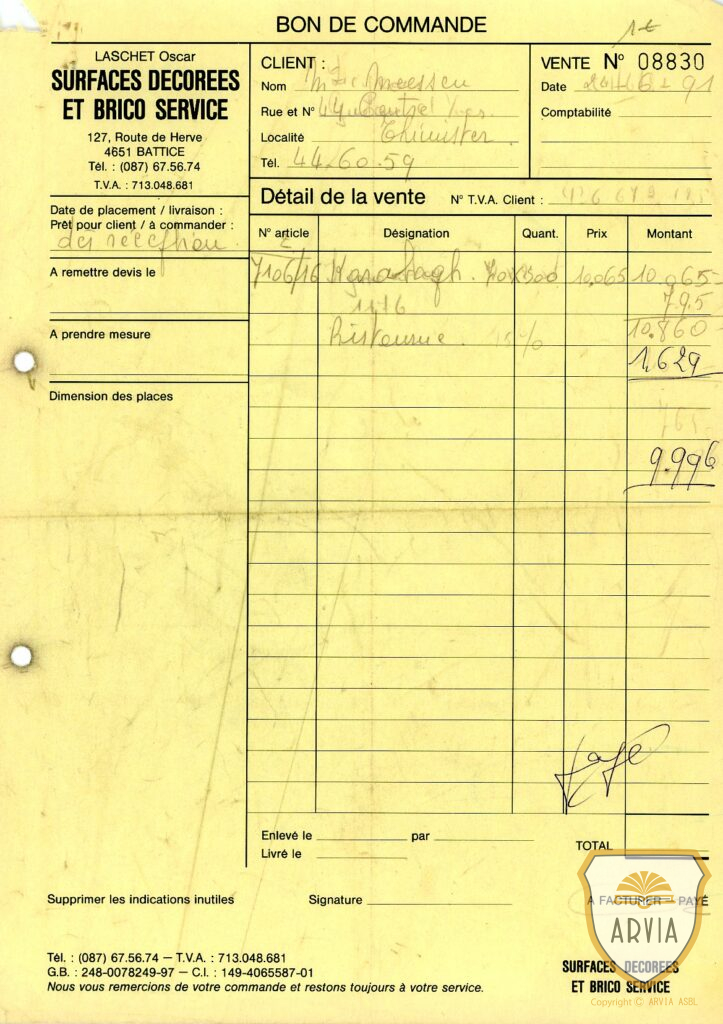 BON DE COMMANDE
LASCHET Oscar
SURFACES DECOREES
ET BRICO SERVICE
127, Route de Herve
4651 BATTICE
Tél. : (087) 67.56.74
T.V.A. : 713.048.681
CLIENT :
Nom Meessen
Rue et N°
Localité Thimister
Tél. 44.60.59
VENTE N° 08830
Date
Comptabilité
Date de placement / livraison :
Prêt pour client / à commander :
dès réception
A remettre devis le
A prendre mesure
Dimension des places
Détail de la vente N° T.V.A. Client :
N° article Désignation Quant. Prix Montant
7106/16 Karabagh. 10.065 10.065-
795
Ristourne. % 10.860-
1,629
9.996
payé
Enlevé le par
Livré le
TOTAL
Supprimer les indications inutiles
Signature
A FACTURER – PAYÉ
Tél. : (087) 67.56.74 – T.V.A. : 713.048.681
G.B. : 248-0078249-97 – C.I. : 149-4065587-01
Nous vous remercions de votre commande et restons toujours à votre service.
SURFACES DECOREES
ET BRICO SERVICE
ARVIA
Copyright © ARVIA ASBL